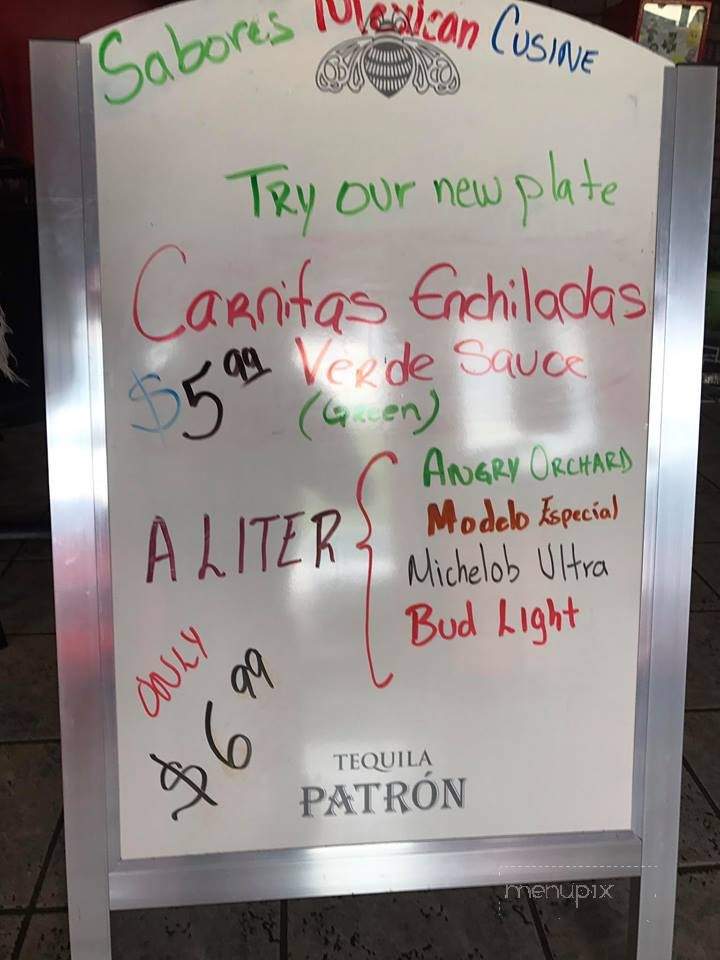 Sabores Mexican CUSINE
TRY our new plate
CARnitas Enchiladas
$5.99 VERde Sauce
(Green)
A LITER
ANGRY ORCHARD
Modelo Especial
Michelob Ultra
Bud Light
ONLY
$6.99
TEQUILA
PATRÓN
menupix